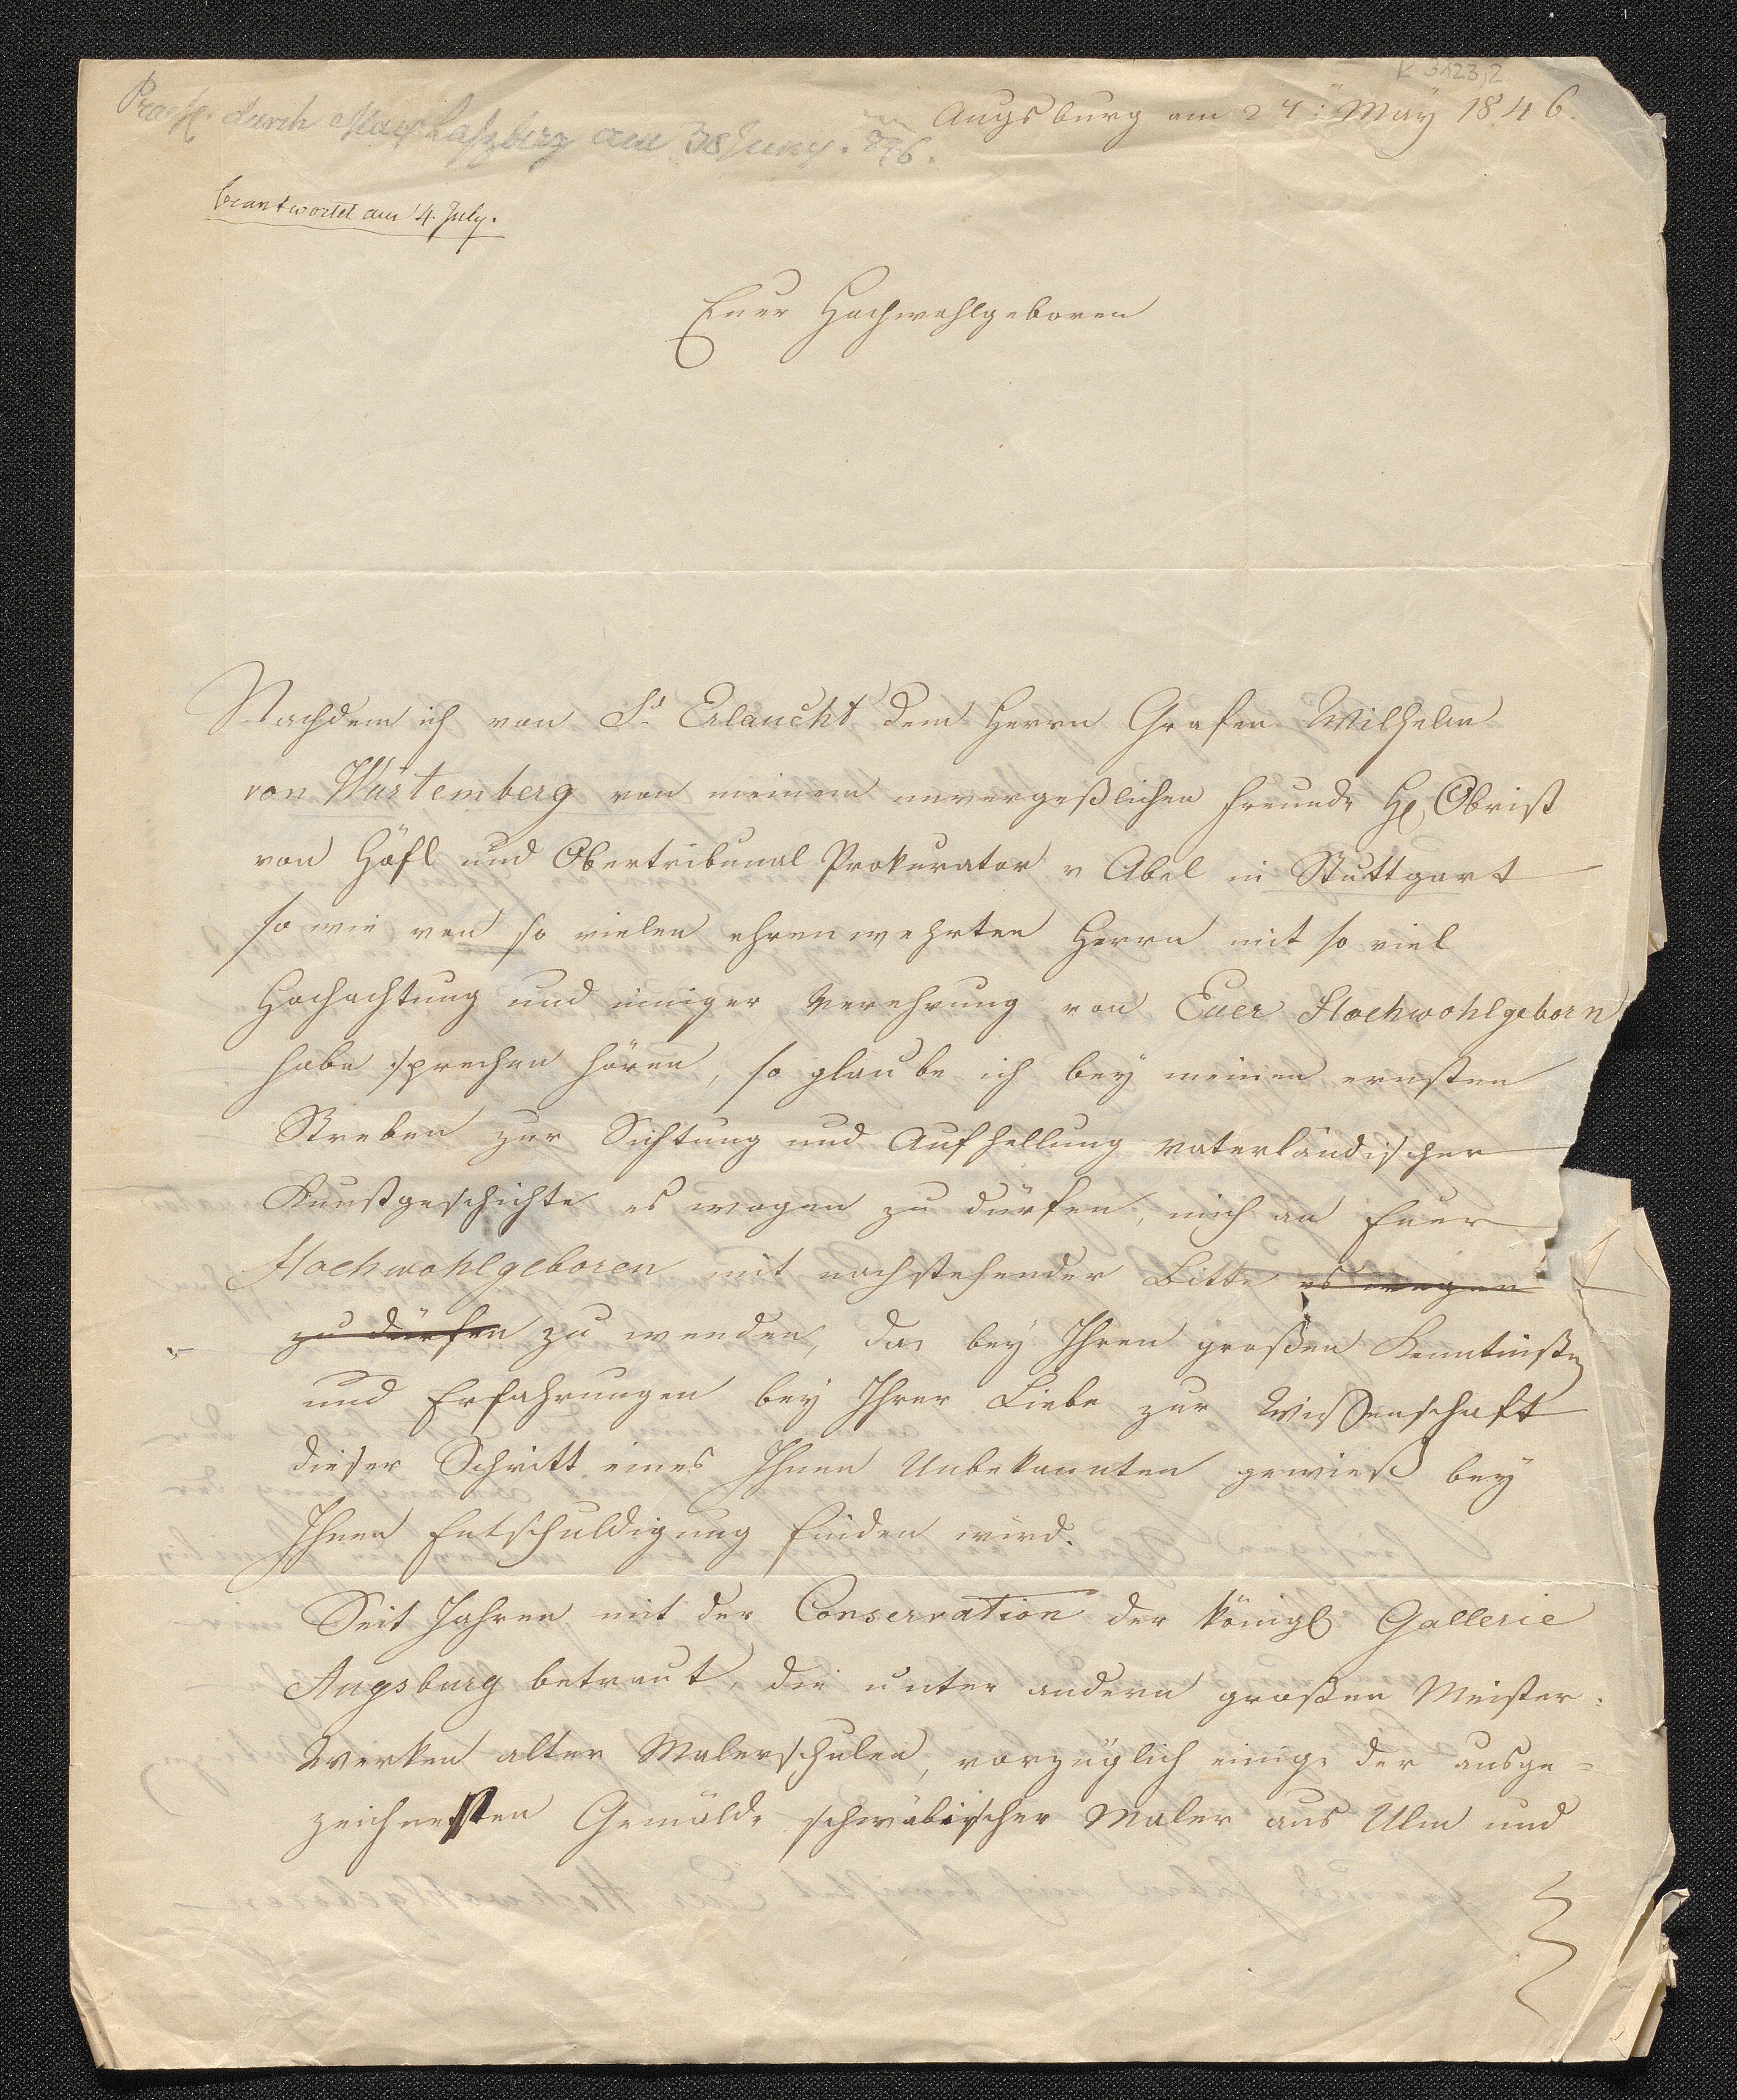 K 3123,2
Praest. durch Max Laßberg am 30 Juny. 846.
Augsburg am 24: May 1846.
beantwortet am 4. July.
Euer Hochwohlgeboren
Nachdem ich von Sr Erlaucht dem Herrn Grafen Wilhelm
von Würtemberg von meinem unvergeßlichen Freunde H Obrist
von Höfl und Obertribunal Prokurator v Abel in Stuttgart
so wie von so vielen ehrenwehrten Herrn mit so viel
Hochachtung und inniger Verehrung von Euer Hochwohlgeborn
habe sprechen hören, so glaube ich bey meinen ernsten
Streben zur Sichtung und Aufhellung vaterländischer
Kunstgeschichte es wagen zu dürfen, mich an Euer
Hochwohlgeboren mit nachstehender Bitte es wagen
zu dürfen zu wenden, da bey Ihren großen Kenntniße
und Erfahrungen bey Ihrer Liebe zur Wissenschaft
dieser Schritt eines Ihnen Unbekannten gewieß bey
Ihnen Entschuldigung finden wird.
Seit Jahren mit der Conservation der königl Gallerie
Augsburg betraut, die unter andern großen Meister-
Werken alter Malerschulen, vorzüglich einige der ausge=
zeichnesten Gemälde schwäbischer Maler aus Ulm und